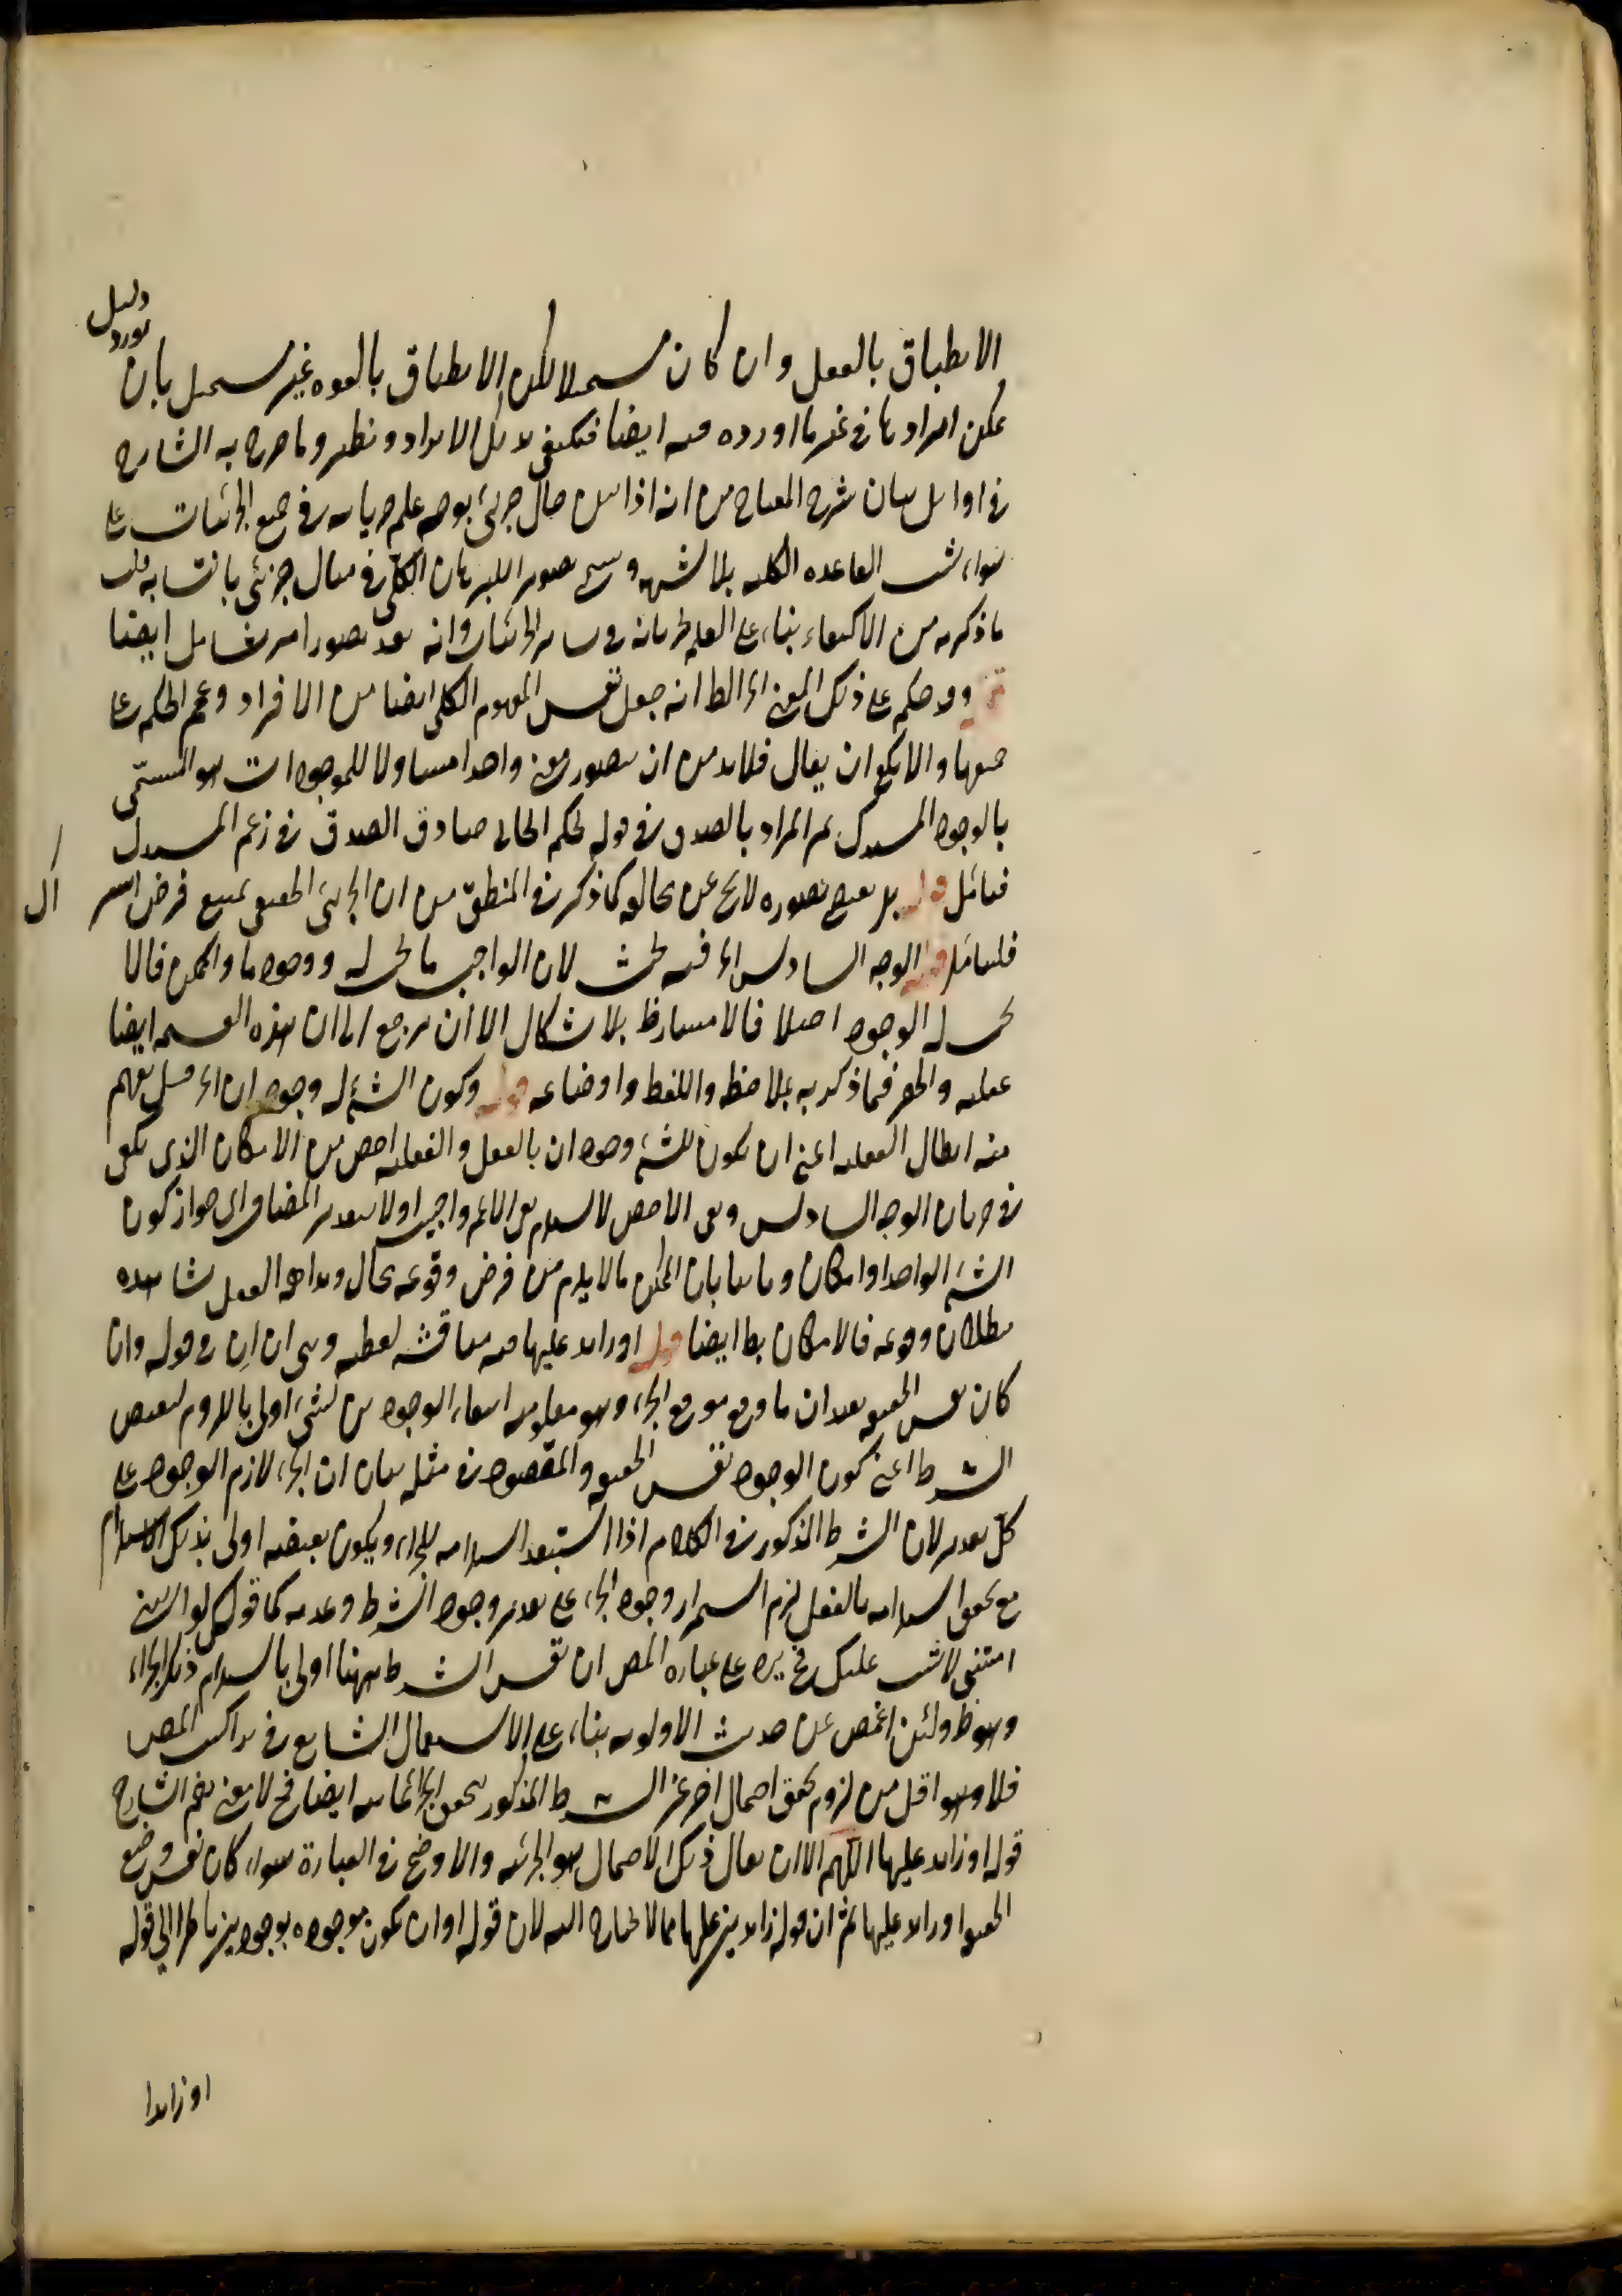 دليل
يورد
الانطباق بالفعل وان كان مستحيلا لكن الانطباق بالقوه غير مستحيل بان
يمكن ايرادها في غير ما اورده فيه ايضا فيكفي لذلك الايراد ونظيره ما صرح به الشارح
في اوايل بيان شرح المفتاح من انه اذا بين حال جزئي بوجه علم جريانه في جميع الجزئيات على
سواء ثبت القاعده الكليه بلا شبهه وسمي تصوير البرهان الكلي في مثال جزئي
ما ذكره من الاكتفاء بناء على العلم بجريانه في ساير الجزئيات وانه بعد تصور امر ايضا
وقد حكم على ذلك المعنى اه الظ انه جعل نفس المفهوم الكلي ايضا من الافراد وعمم الحكم على
جميعها والا يكفي ان يقال فلا بد من ان يتصور معنى واحدا متناولا للموجودات هو المسمى
بالوجود المشترك ثم المراد بالصدق في قوله لحكم الحال صادق الصدق في زعم المستدل
فتأمل قوله بل نفس تصوره لا كما ذكر في المنطق من ان الجزئي الحقيقي يمنع فرض
فليتأمل قوله الوجه السادس اه فيه بحث لان الواجب ما يجب له وجود ما والممكن ما لا
يجب له الوجود اصلا فالامتياز ظ بلا اشكال الا ان يرجع الى ان هذه القسمه ايضا
عقليه والحصر فيما ذكر به بملاحظه اللفظ واوضاعه قوله وكون الشئ له وجودان اه قيل يفهم
منه ابطال الفعليه اعني ان يكون للشئ وجودان بالفعل والفعليه اخص من الامكان الذي يكفي
في جريان الوجه السادس ونفي الاخص لا يستلزم نفي الاعم واجيب اولا بتقدير المضاف اي جواز كون
الشئ الواحد او امكان وثانيا بان الممكن ما لا يلزم من فرض وقوعه محال وبداهه العقل شاهده
ببطلان وقوعه فالامكان بط ايضا قوله او زايد عليها فيه مناقشه لفظيه وهي ان ان في قوله وان
كان نفس الحقيقه يفيد ان ما وقع موقع الجزاء وهو معلوميه انتفاء الوجود من شئ اولى باللزوم لنقيض
الشرط اعني كون الوجود نفس الحقيقه والمقصود في مثله بيان ان الجزاء لازم الوجود على
كل تقدير لان الشرط المذكور في الكلام اذا استبعد استلزامه للجزاء ويكون نقيضه اولى بذلك الاستلزام
مع تحقق استلزامه بالفعل لزم استمرار وجود الجزاء على تقدير وجود الشرط وعدمه كما في قولك لو
لاثنيت عليك فح يرد على عباره المص ان نفس الشرط ههنا اولى باستلزام ذلك الجزاء
وهو ظ ولئن اغمض عن حديث الاولويه بناء على الاستعمال الشايع في تراكيب المص
فلا وهو اقل من لزوم تحقق احتمال اخر غير الشرط المذكور يتحقق الجزاء ايضا فح لا معنى لضم الشارح
قوله او زايد عليها اللهم الا ان يقال ذلك الاحتمال هو الجزئيه والاوضح في العبارة سواء كان نفس
الحقيقه او زايد عليها ثم ان قوله زايدين عليها مما لا يحتاج اليه لان قوله او ان يكون موجوده بوجودين ناظر الى قوله
او زايدا